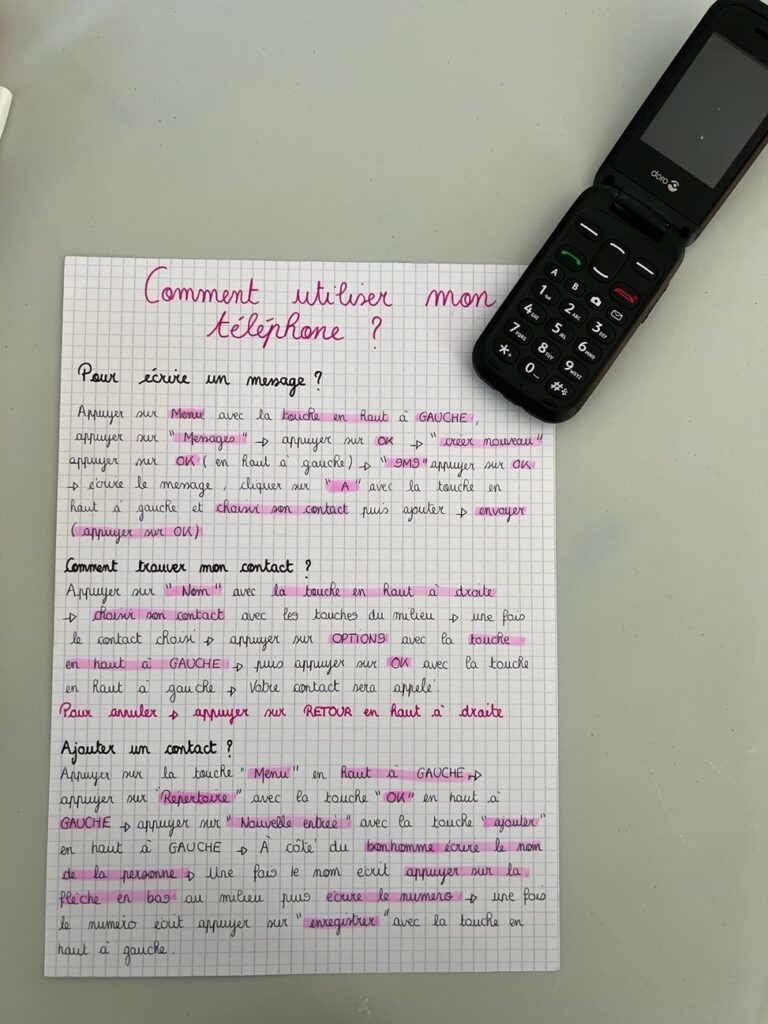 doro
A
B
1
2 ABC
3 DEF
4 GHI
5 JKL
6 MNO
7 PQRS
8 TUV
9 WXYZ
*
0
#
Comment utiliser mon
téléphone ?
Pour écrire un message ?
Appuyer sur Menu avec la touche en haut à GAUCHE,
appuyer sur "Messages" → appuyer sur OK → "créer nouveau"
appuyer sur OK (en haut à gauche) → "SMS" appuyer sur OK
→ écrire le message, cliquer sur "A" avec la touche en
haut à gauche et choisir son contact puis ajouter → envoyer
(appuyer sur OK)
Comment trouver mon contact ?
Appuyer sur "Nom" avec la touche en haut à droite
→ choisir son contact avec les touches du milieu → une fois
le contact choisi → appuyer sur OPTIONS avec la touche
en haut à GAUCHE → puis appuyer sur OK avec la touche
en haut à gauche → Votre contact sera appelé.
Pour annuler → appuyer sur RETOUR en haut à droite
Ajouter un contact ?
Appuyer sur la touche "Menu" en haut à GAUCHE →
appuyer sur "Répertoire" avec la touche "OK" en haut à
GAUCHE → appuyer sur "Nouvelle entrée" avec la touche "ajouter"
en haut à GAUCHE → À côté du bonhomme écrire le nom
de la personne → Une fois le nom écrit appuyer sur la
flèche en bas au milieu puis écrire le numéro → une fois
le numéro écrit appuyer sur "enregistrer" avec la touche en
haut à gauche.